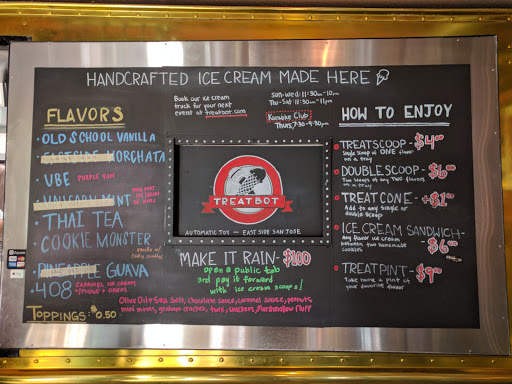 HANDCRAFTED ICE CREAM MADE HERE
Book our ice cream
truck for your next
event at treatbot.com
Sun-Wed: 11:30am-10pm
Thu-Sat: 11:30am-11pm
Karaoke Club
Thurs, 7:30-9:30pm
FLAVORS
OLD SCHOOL VANILLA
EASTSIDE HORCHATA
UBE PURPLE YAM
THAI TEA
COOKIE MONSTER
PINEAPPLE GUAVA
408 CARAMEL ICE CREAM
TOPPINGS: $0.50
TREATBOT
AUTOMATIC JOY — EAST SIDE SAN JOSE
MAKE IT RAIN - $100
open a public tab
and pay it forward
with ice cream scoops!
Olive Oil & Sea Salt, chocolate sauce, caramel sauce, peanuts
mini mnms, graham cracker, twix, snickers, Marshmallow Fluff
HOW TO ENJOY
TREATSCOOP - $4.00
Single scoop of ONE flavor
in a tray
DOUBLE SCOOP - $6.00
Two scoops of any TWO flavors
in a tray
TREAT CONE - +$1.00
Add to any single or
double scoop
ICE CREAM SANDWICH -
any flavor ice cream
between two homemade
cookies
$6.00
TREATPINT - $9.00
Take home a pint of
your favorite flavor!